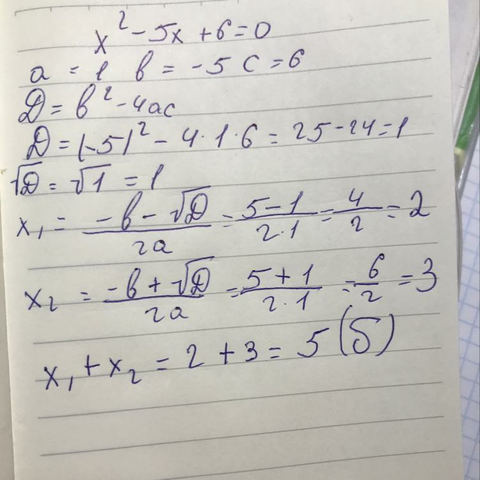 x² - 5x + 6 = 0
a = 1 b = -5 c = 6
D = b² - 4ac
D = (-5)² - 4·1·6 = 25 - 24 = 1
√D = √1 = 1
x₁ = (-b - √D)/2a = (5 - 1)/2·1 = 4/2 = 2
x₂ = (-b + √D)/2a = (5 + 1)/2·1 = 6/2 = 3
x₁ + x₂ = 2 + 3 = 5 (б)